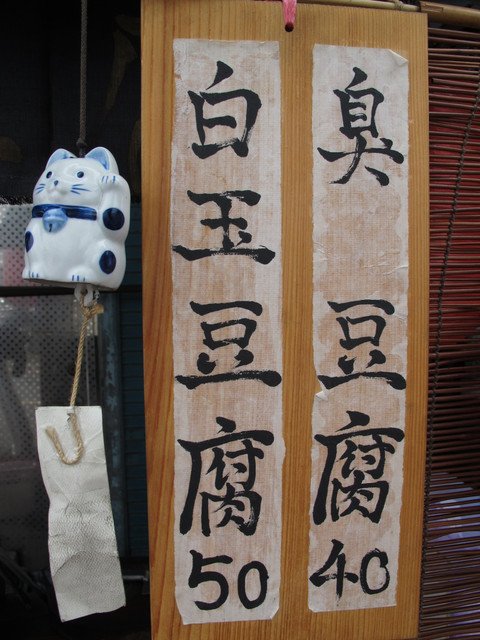 臭豆腐40
白玉豆腐50